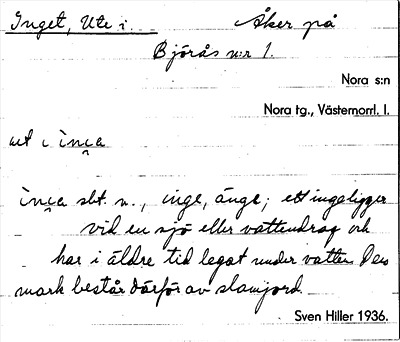 Inget, Ute i... Åker på
Björås n:r 1.
Nora s:n
Nora tg., Västernorrl. l.
ut i ìnca
ìnca sbt. n., inge, änge; ett inge ligger
vid en sjö eller vattendrag och
har i äldre tid legat under vatten. Den
mark består därför av slamjord.
Sven Hiller 1936.